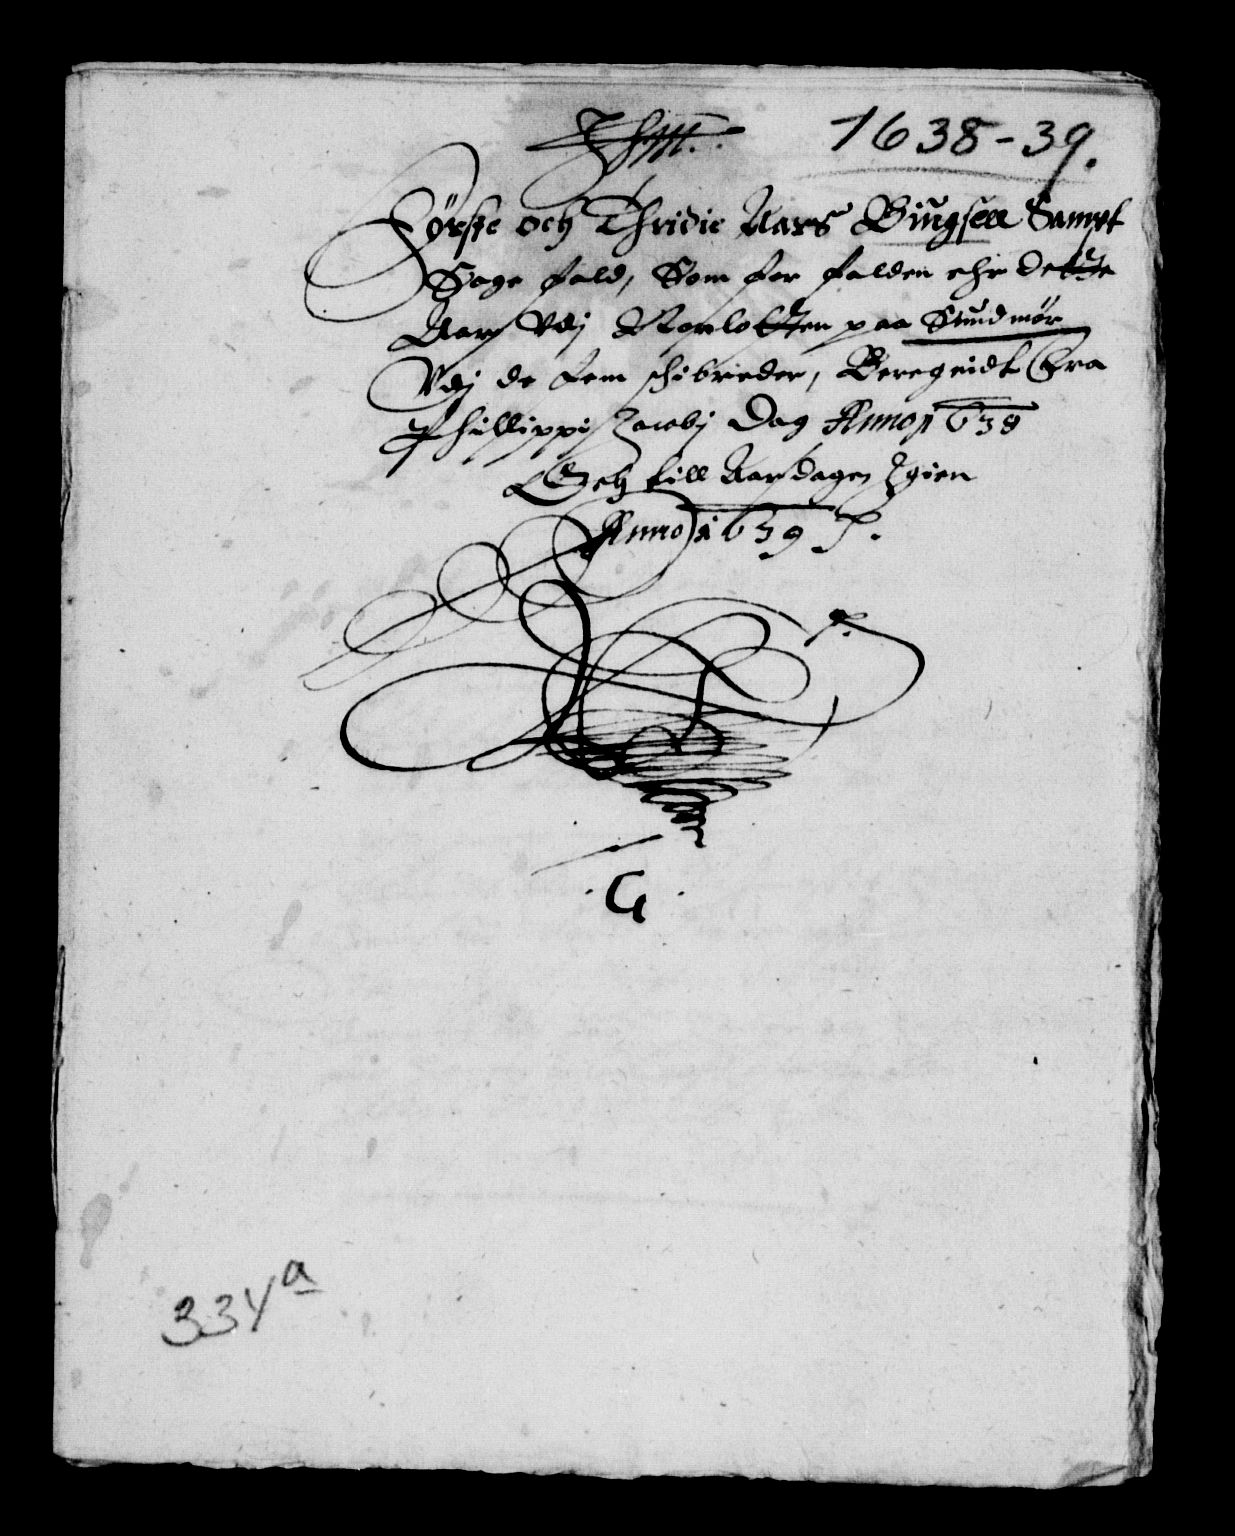 1638-39.
Förste och Thridie Aars Büugsell Sampt
Sage fald, Som for falden ehr dette
Aar Vdj Norlotten paa Sundmör
Vdj de fem schibreder, Beregnidt Fra
Phillippi Jacobj Dag Anno 1638
Och till Aarsdagen Igien
Anno 1639
G
334a